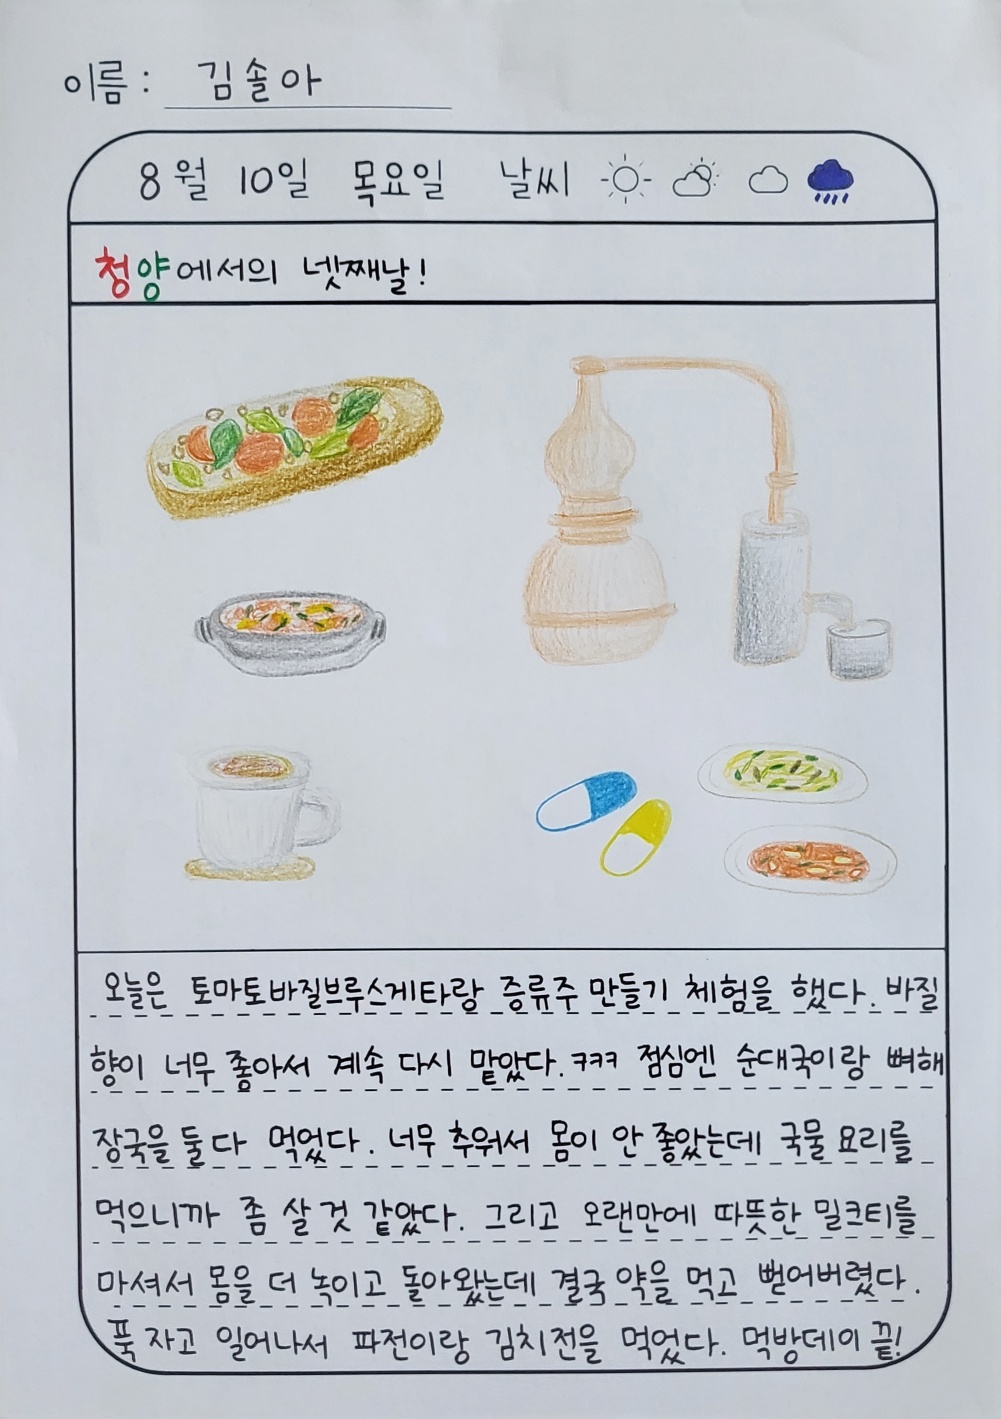 이름: 김솔아
8월 10일 목요일 날씨
청양에서의 넷째날!
오늘은 토마토바질브루스게타랑 증류주 만들기 체험을 했다. 바질
향이 너무 좋아서 계속 다시 맡았다.ㅋㅋㅋ 점심엔 순대국이랑 뼈해
장국을 둘 다 먹었다. 너무 추워서 몸이 안 좋았는데 국물 요리를
먹으니까 좀 살 것 같았다. 그리고 오랜만에 따뜻한 밀크티를
마셔서 몸을 더 녹이고 돌아왔는데 결국 약을 먹고 뻗어버렸다.
푹 자고 일어나서 파전이랑 김치전을 먹었다. 먹방데이 끝!